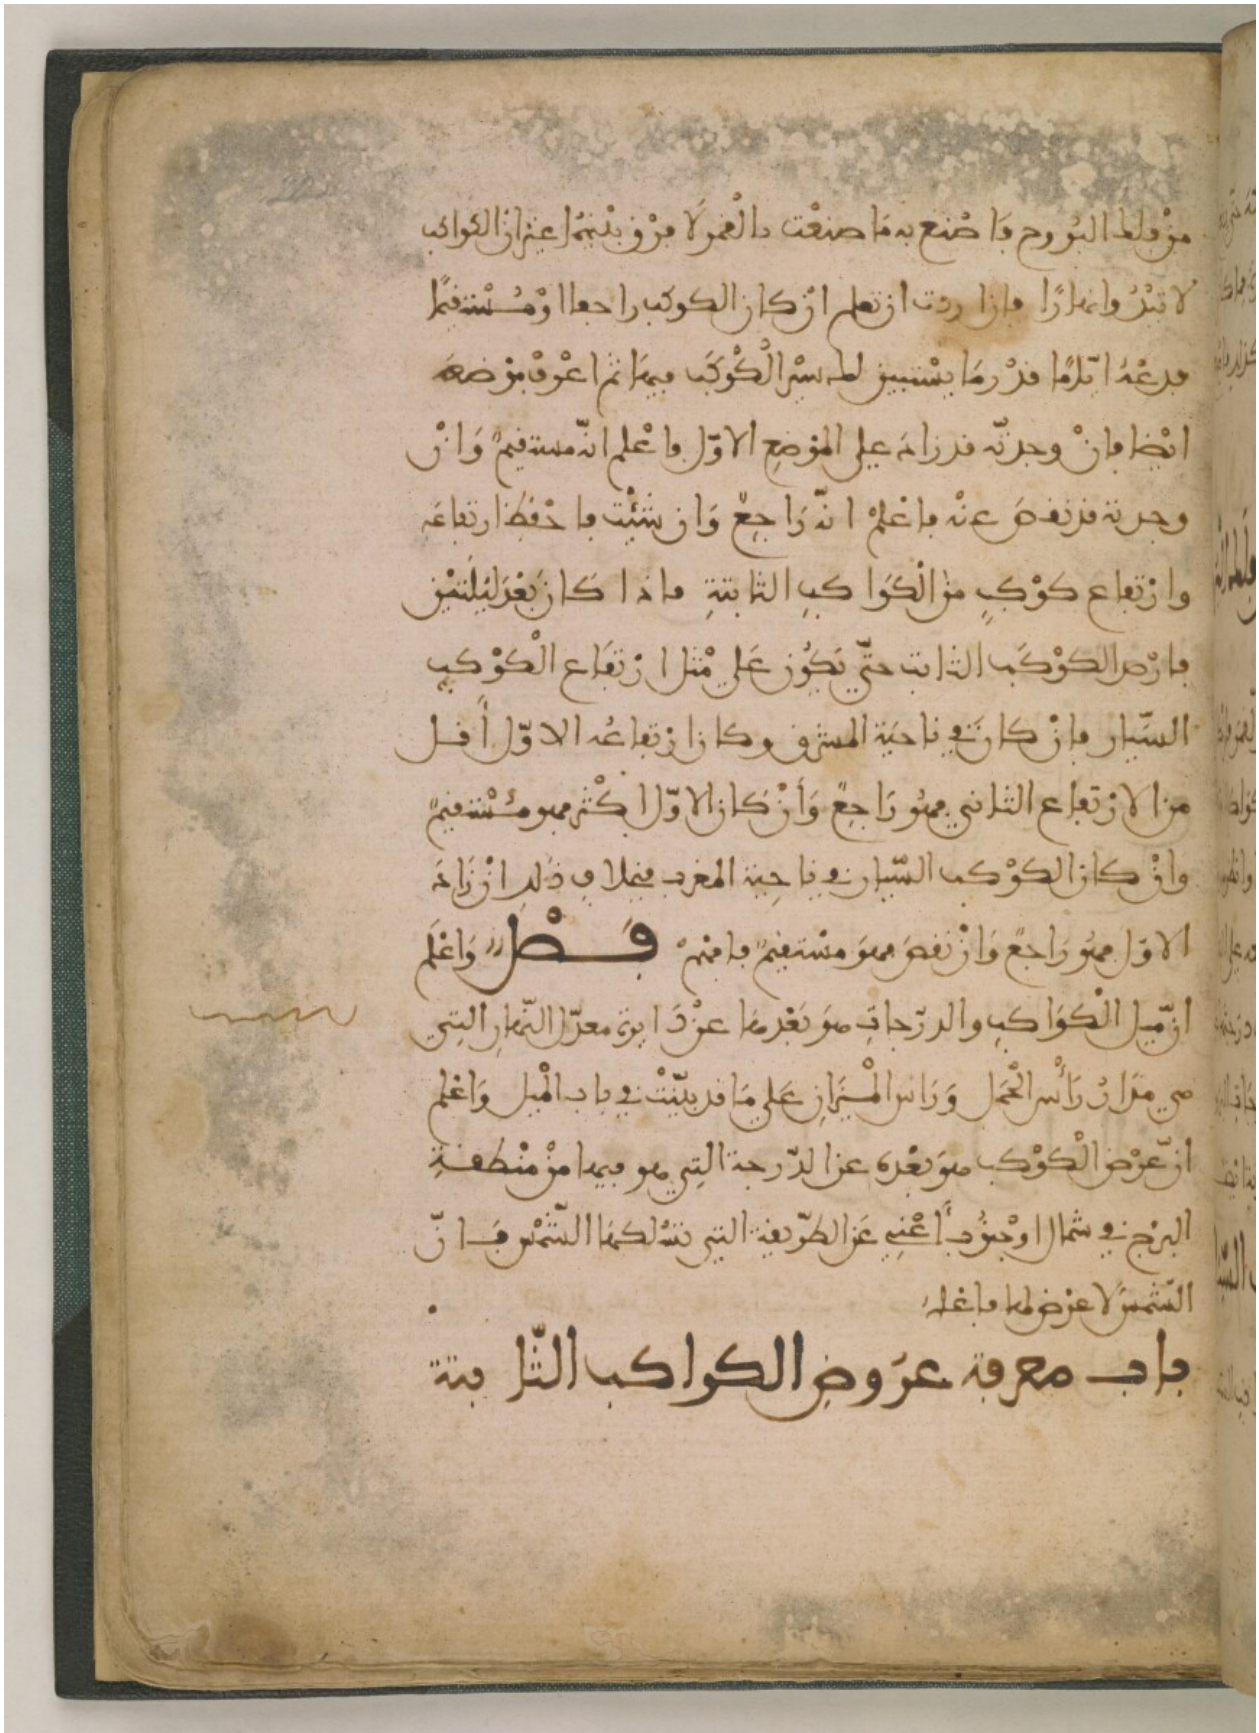 من فلك البروج فاصنع به ما صنعت بالقمر لا فرق بينهما غير ان الكواكب
لا تبدوا نهارًا فاذا اردت ان تعلم ان كان الكوكب راجعا اوْ مُسْتقيمًا
فدعْهُ ايّامًا قدْر ما يسْتبين لك سيْر الْكوْكَب فيهَا ثم اعرف موْضعه
ايْضا فانْ وجدتّه قد زاد على الموْضع الاوّل فاعْلم انه مستقيمٌ وَانْ
وجدته قد نقصَ عنْه فاعْلمْ انّه رَاجعٌ وَان شئْت فاحْفظ ارتفاعَه
وارْتفاع كوْكبٍ من الْكوَاكبِ الثابتةِ فاذا كَان بَعْدَ ليْلتيْن
فارْصد الكوْكَب الثابت حتّى يَكُون عَلى مثْل ارْتفَاع الْكوْكبِ
السّيّار فانْ كانَ في ناحيَة المشرق وكان ارْتفاعُه الاوّل أقل
من الارْتفاع الثاني فهُو رَاجعٌ وَانْ كَان الاوّل اكْثر فهو مُسْتقيمٌ
وانْ كان الكوْكب السّيّار في ناحِية المغرب فبخلاف ذلك انْ زَادَ
الاوّل فهُو رَاجعٌ وَانْ نقصَ فهوَ مسْتقيمٌ فافهمْ فَصْل وَاعْلَم
انّ ميل الْكوَاكبِ والدرَجات هوَ بعْدها عنْ دَايرة معدّل النّهارِ التِي
هي مدَارُ رَأس الْحَمل وَرَاس الْميزَانِ عَلى مَا قد بيّنْتُ في باب الْميل وَاعْلم
انّ عَرْض الْكوْكب هوَ بعْده عن الدّرجة التِي هو فيها منْ مِنْطقةِ
البرُج في شمال اوْ جنُوب أعْني عَن الطّريقة التي تسْلكهَا الشّمْس فَانّ
الشّمْسَ لا عرْض لها فاعلم
باب معرفة عرَوض الكواكب الثّابتة